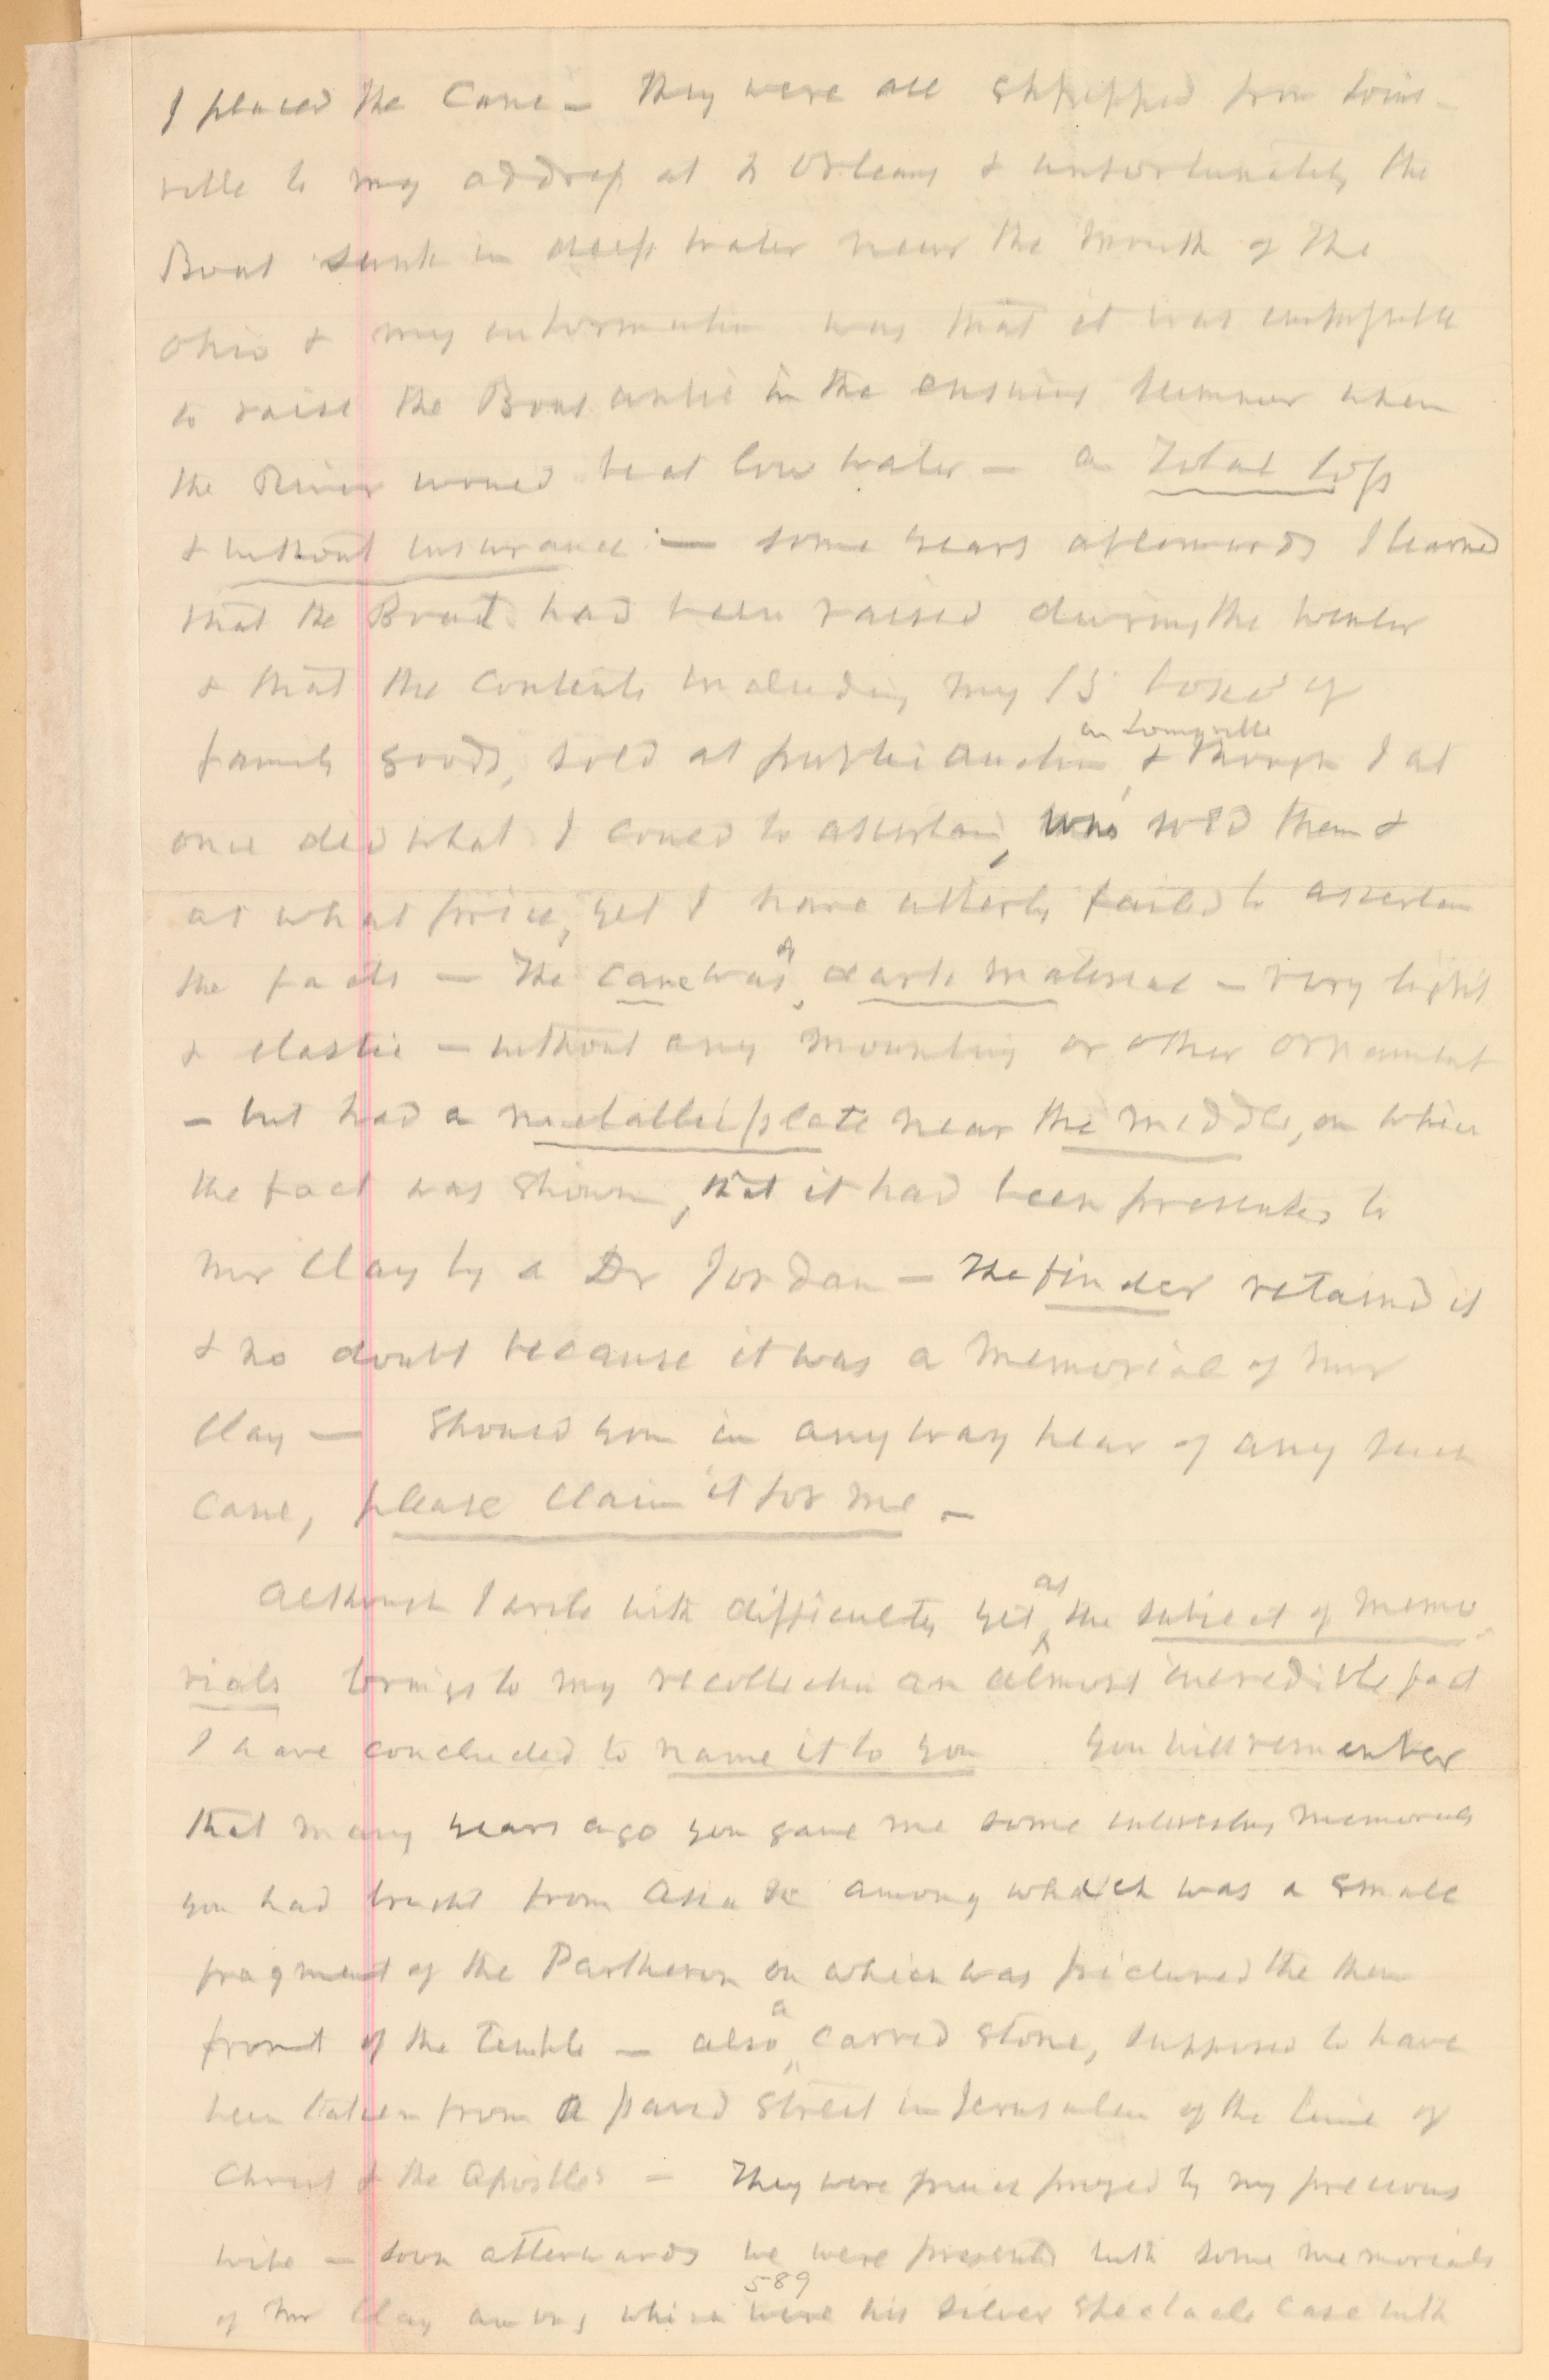 I placed the Cane — They were all shipped from Louis-
ville to my address at N Orleans & unfortunately the
Boat sunk in deep water near the mouth of the
Ohio & my information was that it was impossible
to raise the Boat until in the ensuing summer when
the River would be at low water — a total loss
& without insurance — some years afterwards I learned
that the Boat had been raised during the winter
& that the contents including my 15 boxes of
in Louisville
family goods, sold at public auction, & though I at
once did what I could to ascertain, who sold them &
at what price, yet I have utterly failed to ascertain
of
the facts — The cane was dark material — very light
& elastic — without any mounting or other ornament
— but had a metallic plate near the middle, on which
the fact was shown, that it had been presented to
Mr Clay by a Dr Jordan — The finder retained it
& no doubt because it was a memorial of Mr
Clay — Should you in any way hear of any such
Cane, please claim it for me —
as
Although I write with difficulty yet the subject of memo-
rials brings to my recollection an almost incredible fact
I have concluded to name it to you. You will remember
that many years ago you gave me some interesting memorials
you had brought from Asia &c among which was a small
fragment of the Parthenon on which was pictured the then
a
front of the temple — also carved stone, supposed to have
been taken from a paved street in Jerusalem of the time of
Christ & the Apostles — They were much prized by my precious
wife — soon afterwards we were presented with some memorials
589
of Mr Clay among which were his silver spectacle case with